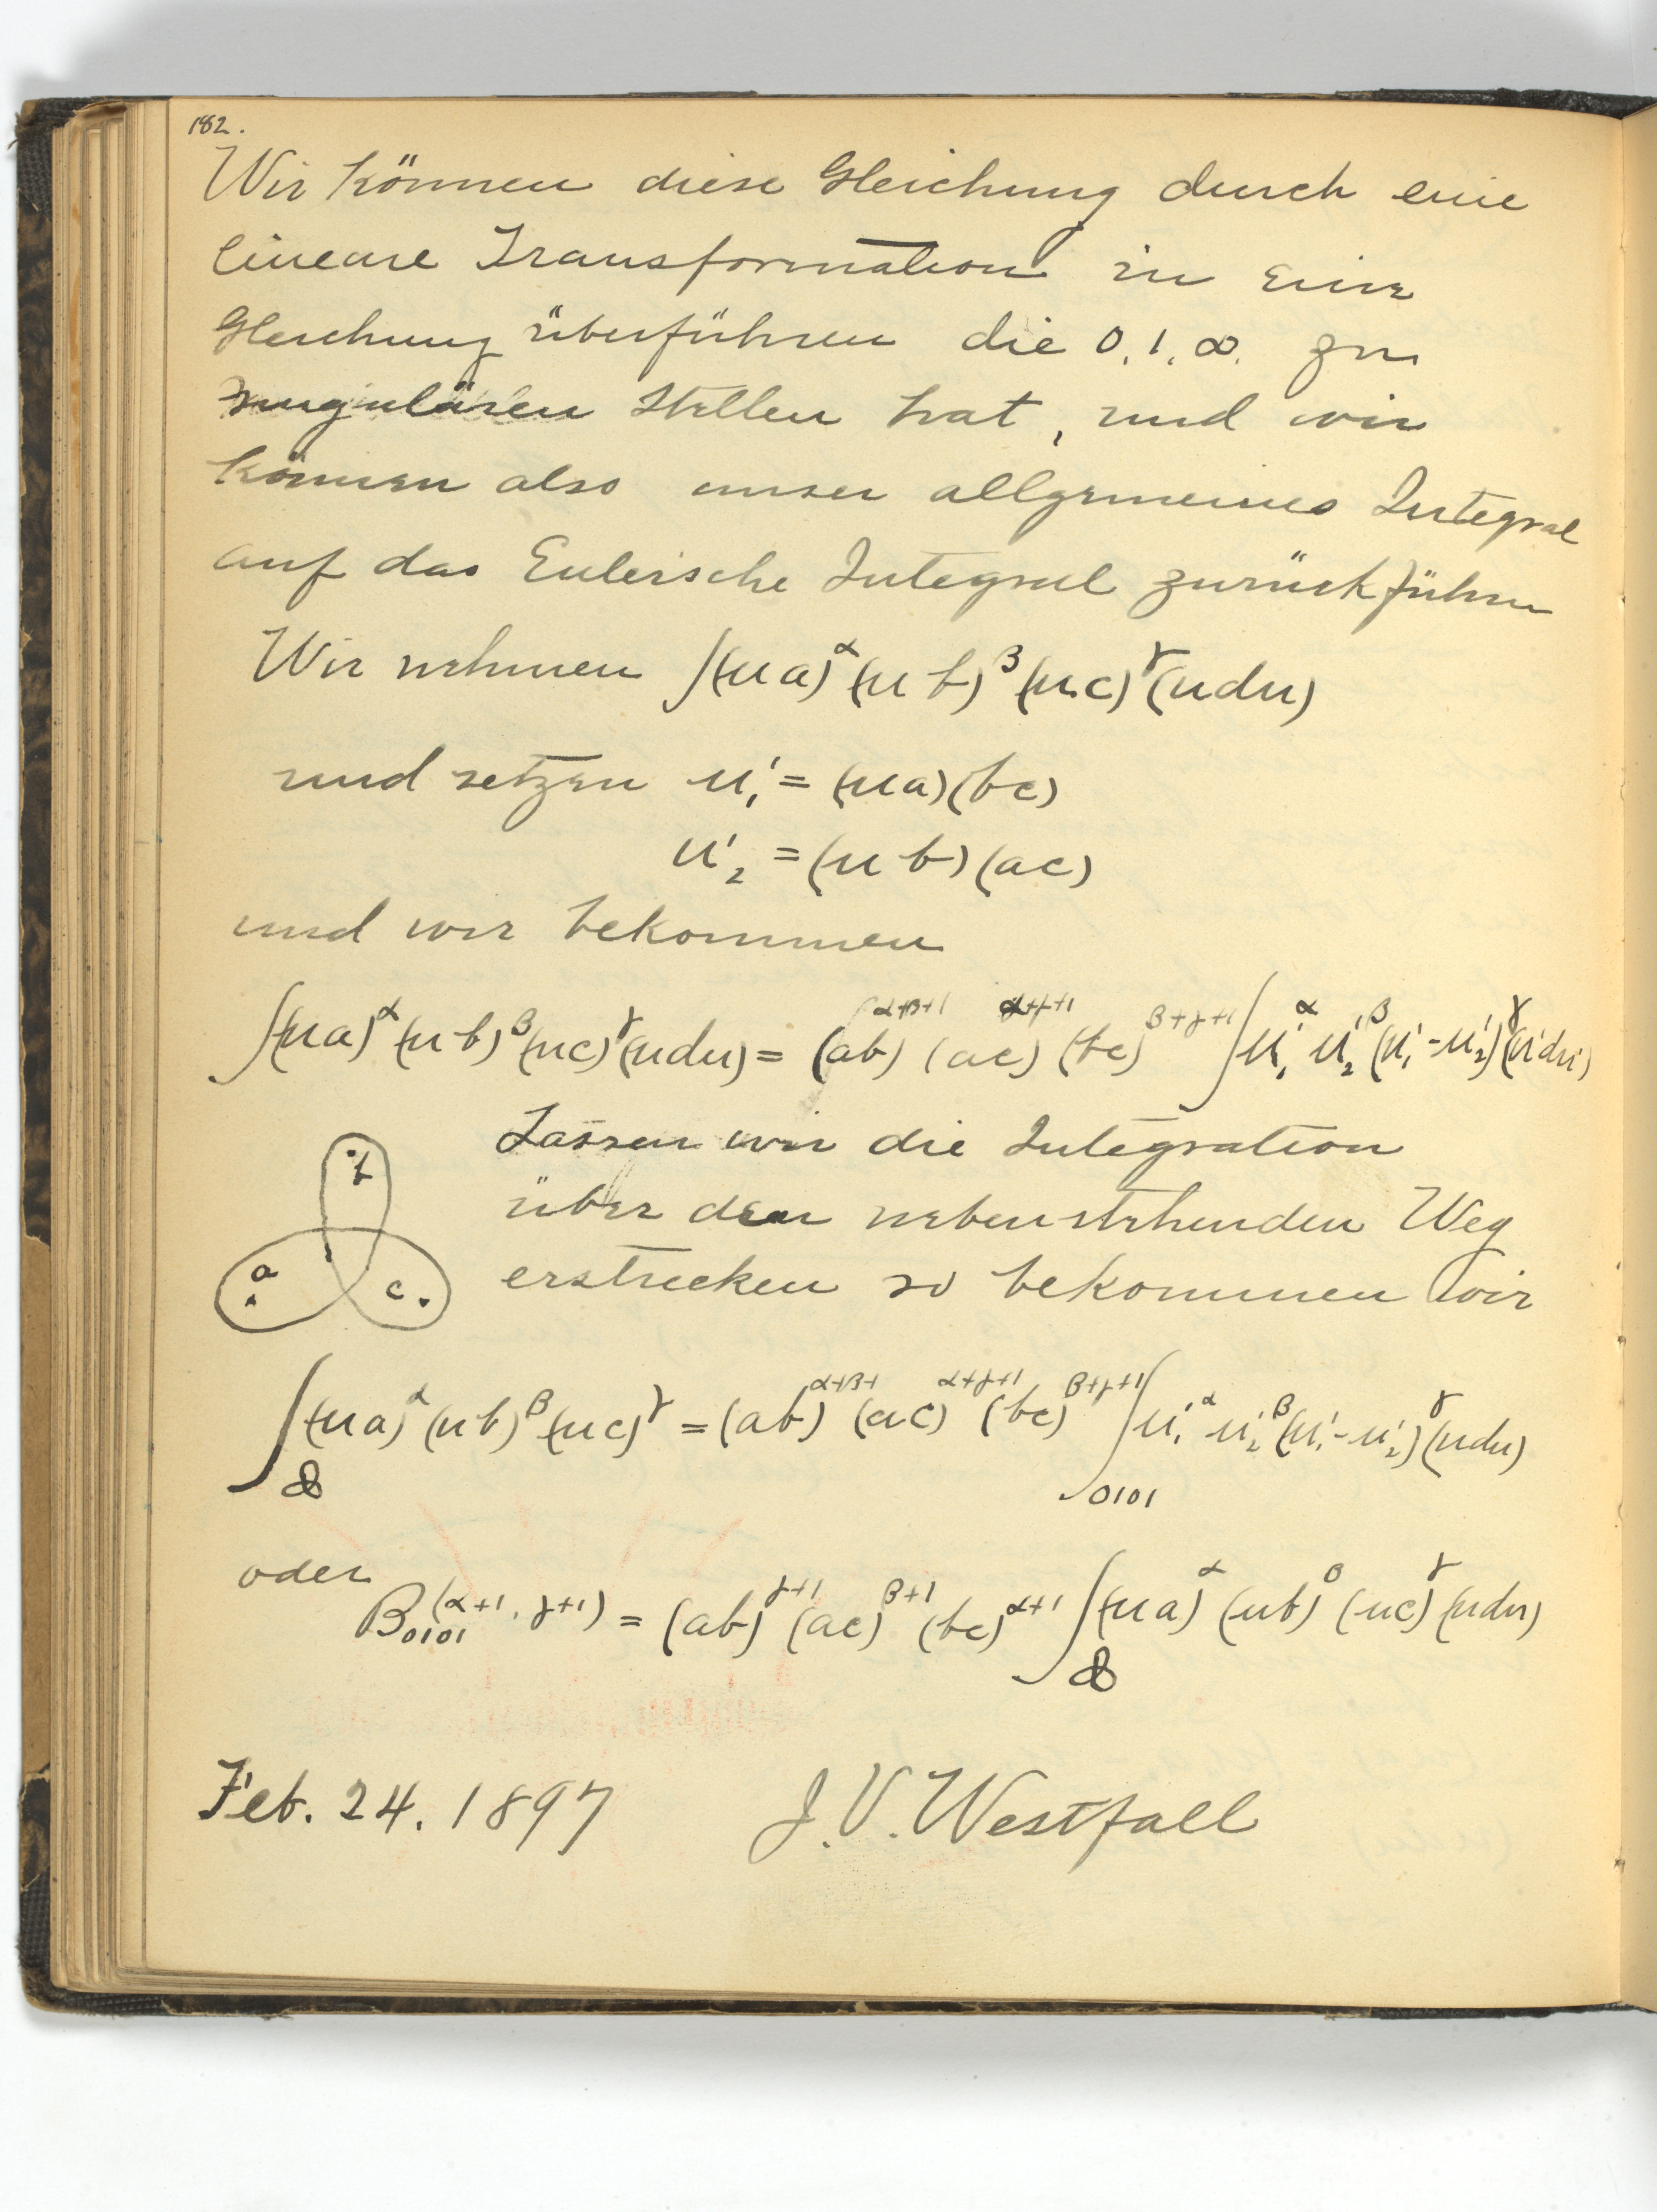 182.
Wir können diese Gleichung durch eine
lineare Transformation in eine
Gleichung überführen die 0, 1, ∞. zu
singulären Stellen hat, und wir
können also unser allgemeines Integral
auf das Eulerische Integral zurückführen
Wir nehmen ∫(ua)^α (ub)^β (uc)^γ (udu)
und setzen u'₁ = (ua)(bc)
u'₂ = (ub)(ac)
und wir bekommen
∫(ua)^α (ub)^β (uc)^γ (udu) = (ab)^{α+β+1} (ac)^{α+γ+1} (bc)^{β+γ+1} ∫u'₁^α u'₂^β (u'₁-u'₂)^γ (u'du')
Lassen wir die Integration
über den nebenstehenden Weg
erstrecken so bekommen wir
b
a
c
∫(ua)^α (ub)^β (uc)^γ = (ab)^{α+β+} (ac)^{α+γ+1} (bc)^{β+γ+1} ∫_{0101} u'₁^α u'₂^β (u'₁-u'₂)^γ (udu)
oder
B_{0101}(α+1, γ+1) = (ab)^{γ+1} (ac)^{β+1} (bc)^{α+1} ∫(ua)^α (ub)^β (uc)^γ (udu)
Feb. 24. 1897 J. V. Westfall